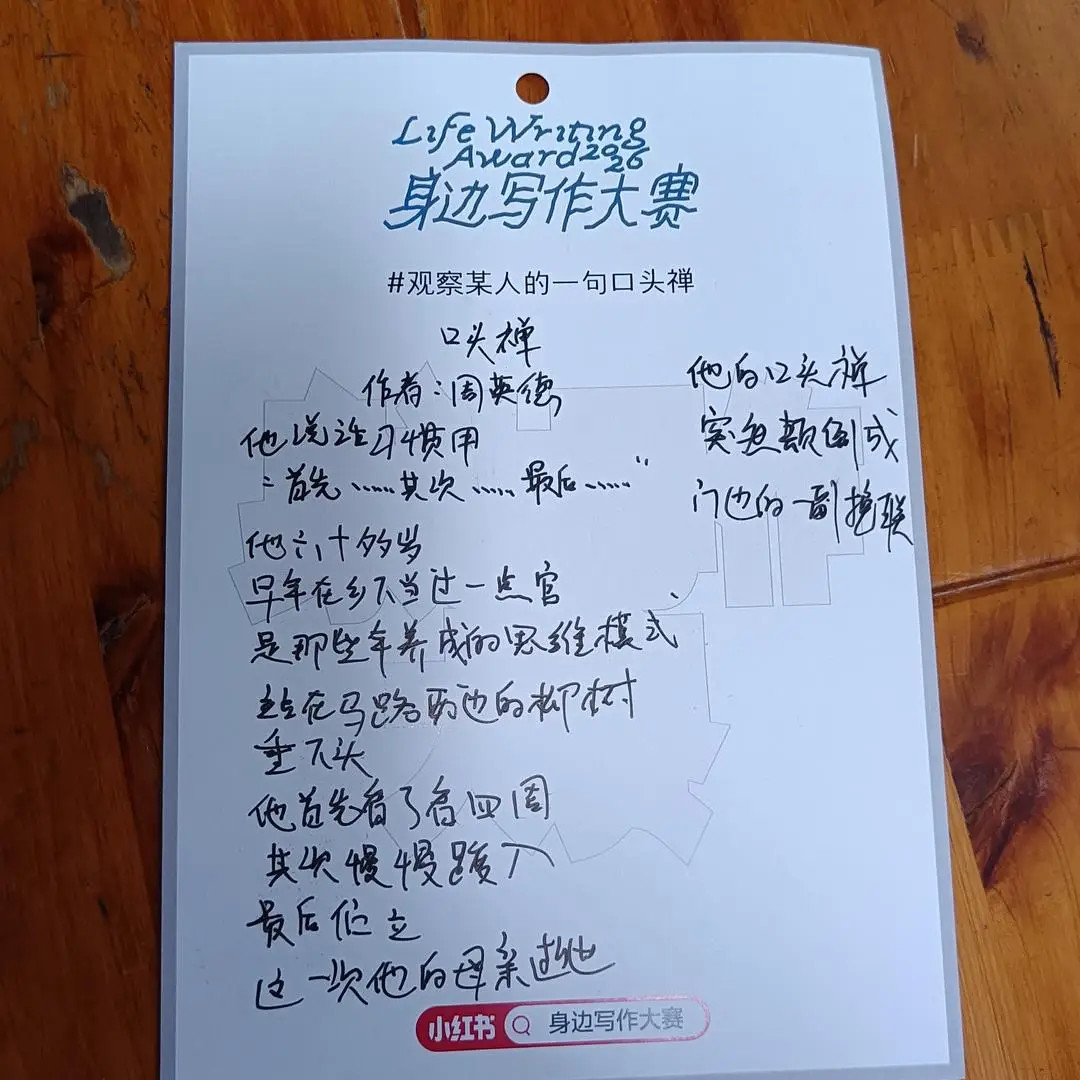 Life Writing
Award 2026
身边写作大赛
#观察某人的一句口头禅
口头禅
作者：周英德
他说话习惯用
“首先……其次……最后……”
他六十多岁
早年在乡下当过一点官
是那些年养成的思维模式
站在马路两边的柳树
垂下头
他首先看了看四周
其次慢慢踱入
最后伫立
这一次他的母亲过世
他的口头禅
突兀颠倒成
门边的一副挽联
小红书 身边写作大赛